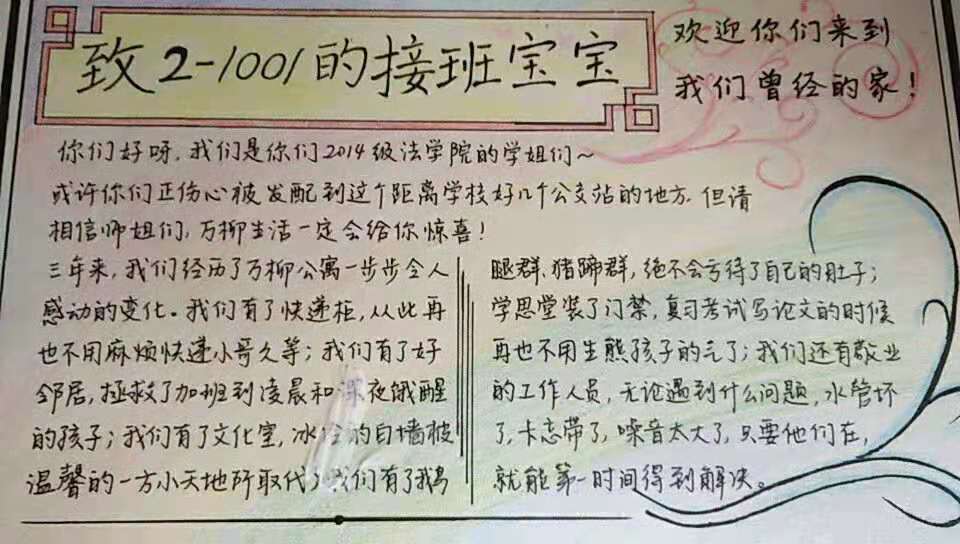 致2-1001的接班宝宝
欢迎你们来到
我们曾经的家!
你们好呀,我们是你们2014级法学院的学姐们~
或许你们正伤心被发配到这个距离学校好几个公交站的地方.但请
相信师姐们,万柳生活一定会给你惊喜!
三年来,我们经历了万柳公寓一步步令人
感动的变化。我们有了快递柜,从此再
也不用麻烦快递小哥久等;我们有了好
邻居,拯救了加班到凌晨和深夜饿醒
的孩子;我们有了文化室,冰冷的白墙被
温馨的一方小天地所取代;我们有了鹅
腿群、猪蹄群,绝不会亏待了自己的肚子;
学思堂装了门禁,复习考试写论文的时候
再也不用生熊孩子的气了;我们还有敬业
的工作人员,无论遇到什么问题,水管坏
了,卡忘带了,噪音太大了,只要他们在,
就能第一时间得到解决。